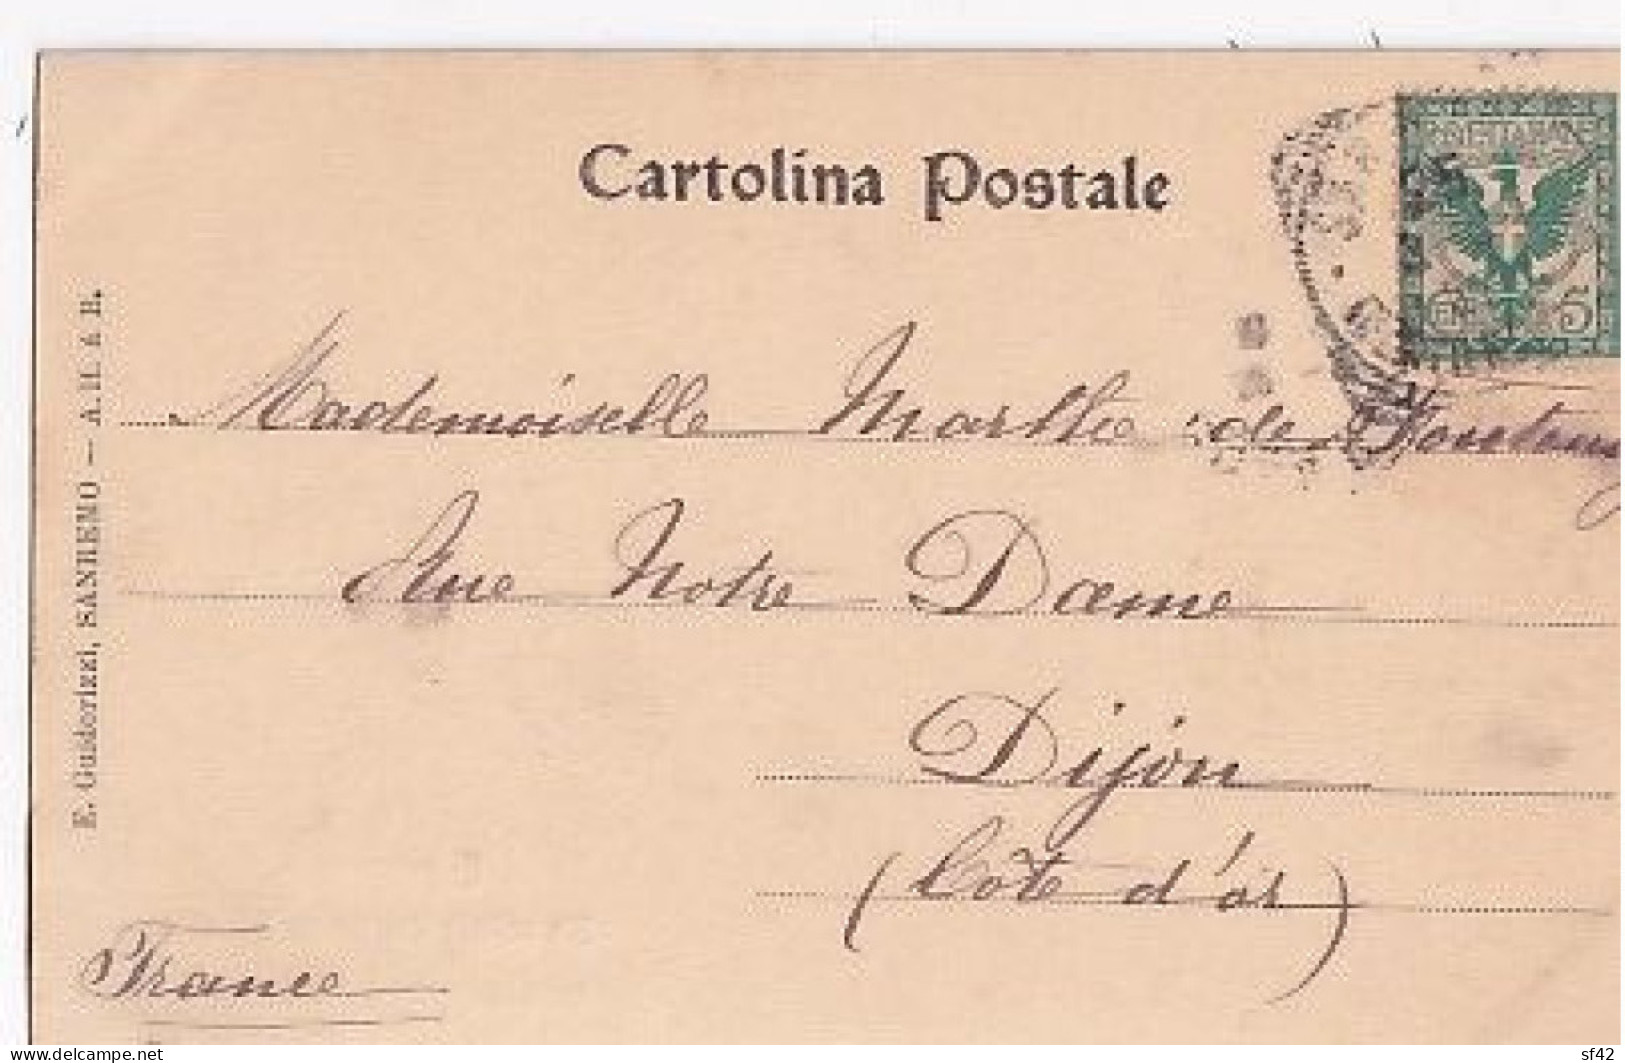 Cartolina Postale
POSTE ITALIANE
CEN 5
Mademoiselle Marthe de
Rue Notre Dame
Dijon
(Côte d'or)
France
E. Guidorizzi, SANREMO — A. H. & B.
https://www.delcampe.net
sf42